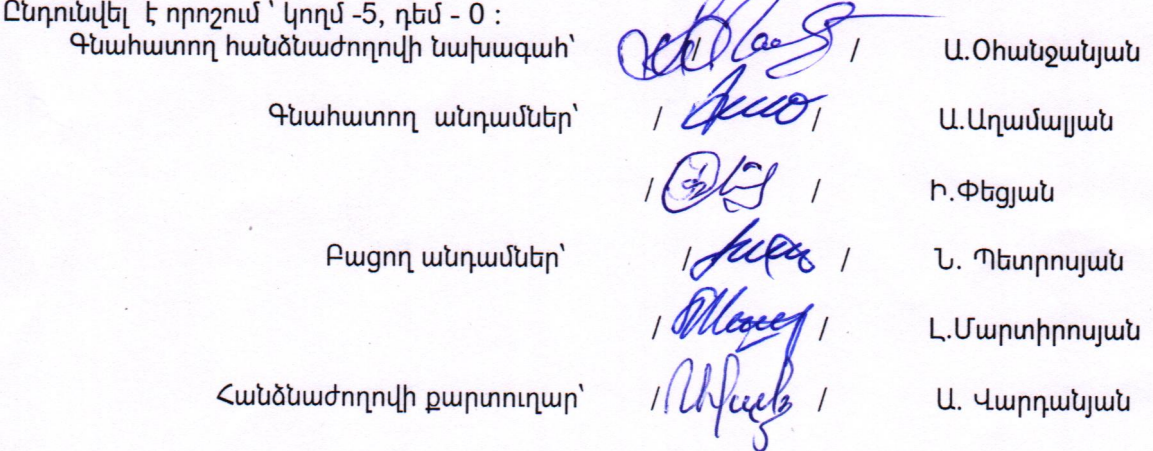 Ընդունվել է որոշում ՝ կողմ -5, դեմ - 0 :
Գնահատող հանձնաժողովի նախագահ՝ / / Ա.Օհանջանյան
Գնահատող անդամներ՝ / / Ա.Աղամալյան
/ / Ի.Փեցյան
Բացող անդամներ՝ / / Ն. Պետրոսյան
/ / Լ.Մարտիրոսյան
Հանձնաժողովի քարտուղար՝ / / Ա. Վարդանյան